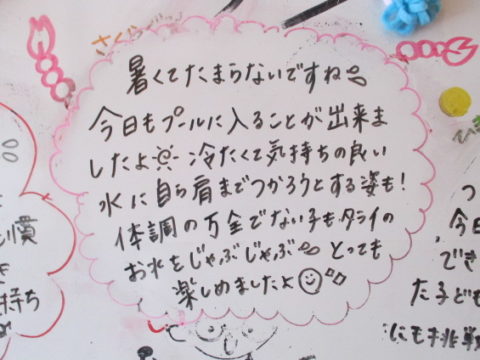 さくら
暑くてたまらないですね
今日もプールに入ることが出来ま
したよ 冷たくて気持ちの良い
水に自ら肩までつかろうとする姿も！
体調の万全でない子もタライの
お水をじゃぶじゃぶ とっても
楽しめましたよ
慣
持ち
つ
今日
でき
た子ども
にも挑戦